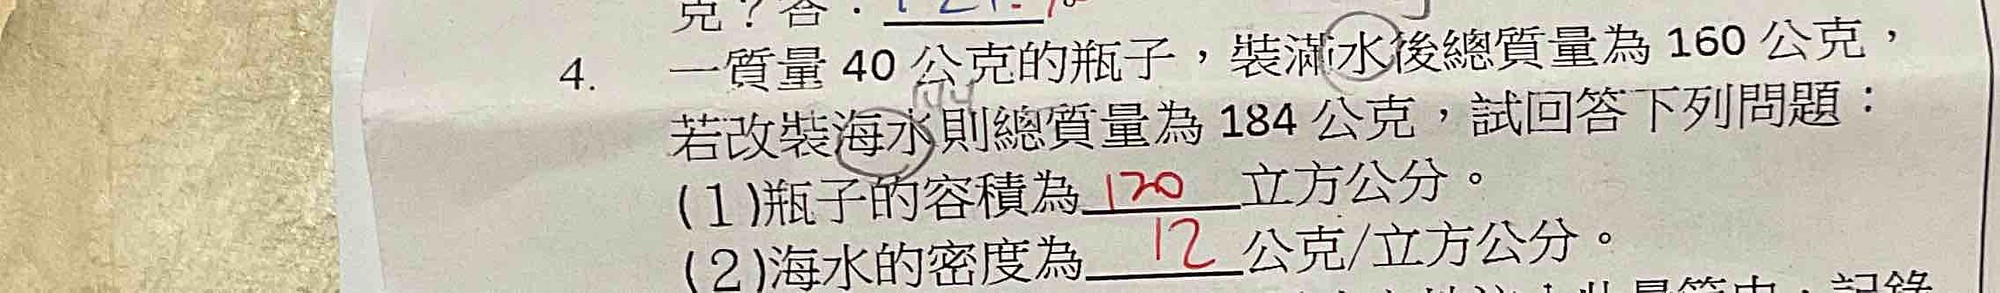 克？答：
4. 一質量 40 公克的瓶子，裝滿水後總質量為 160 公克，
若改裝海水則總質量為 184 公克，試回答下列問題：
(1)瓶子的容積為 120 立方公分。
(2)海水的密度為 12 公克/立方公分。